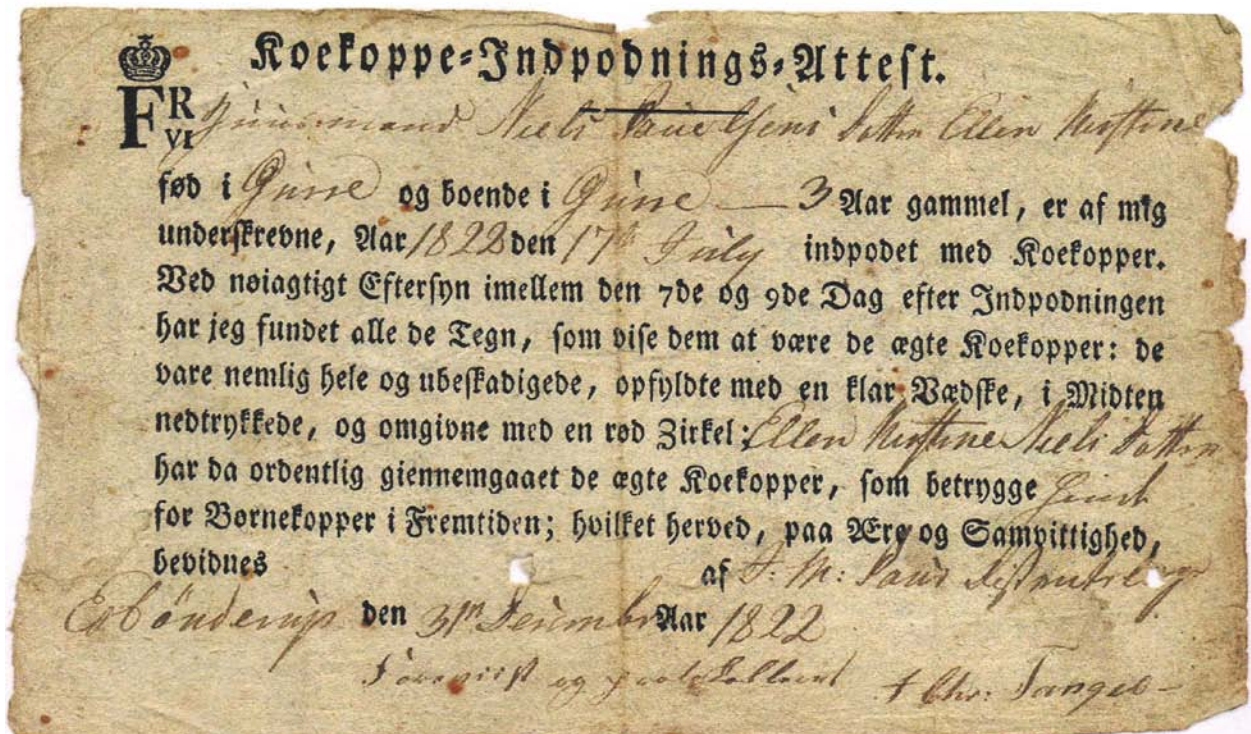 Koekoppe-Indpodnings-Attest.
FR
VI
Niels Ellen Kirstine
fød i Gurre og boende i Gurre — 3 Aar gammel, er af mig
underskrevne, Aar 1822 den 17de July indpodet med Koekopper.
Ved nøiagtigt Eftersyn imellem den 7de og 9de Dag efter Indpodningen
har jeg fundet alle de Tegn, som vise dem at være de ægte Koekopper: de
vare nemlig hele og ubeskadigede, opfyldte med en klar Vædske, i Midten
nedtrykkede, og omgivne med en rød Zirkel; Ellen Kirstine Niels Datter
har da ordentlig giennemgaaet de ægte Koekopper, som betrygge
for Børnekopper i Fremtiden; hvilket herved, paa Ære og Samvittighed,
bevidnes af
Esbönderup den 31te December Aar 1822
og